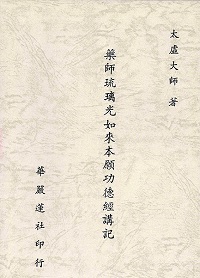 太虛大師 著
藥師琉璃光如來本願功德經講記
華嚴蓮社印行